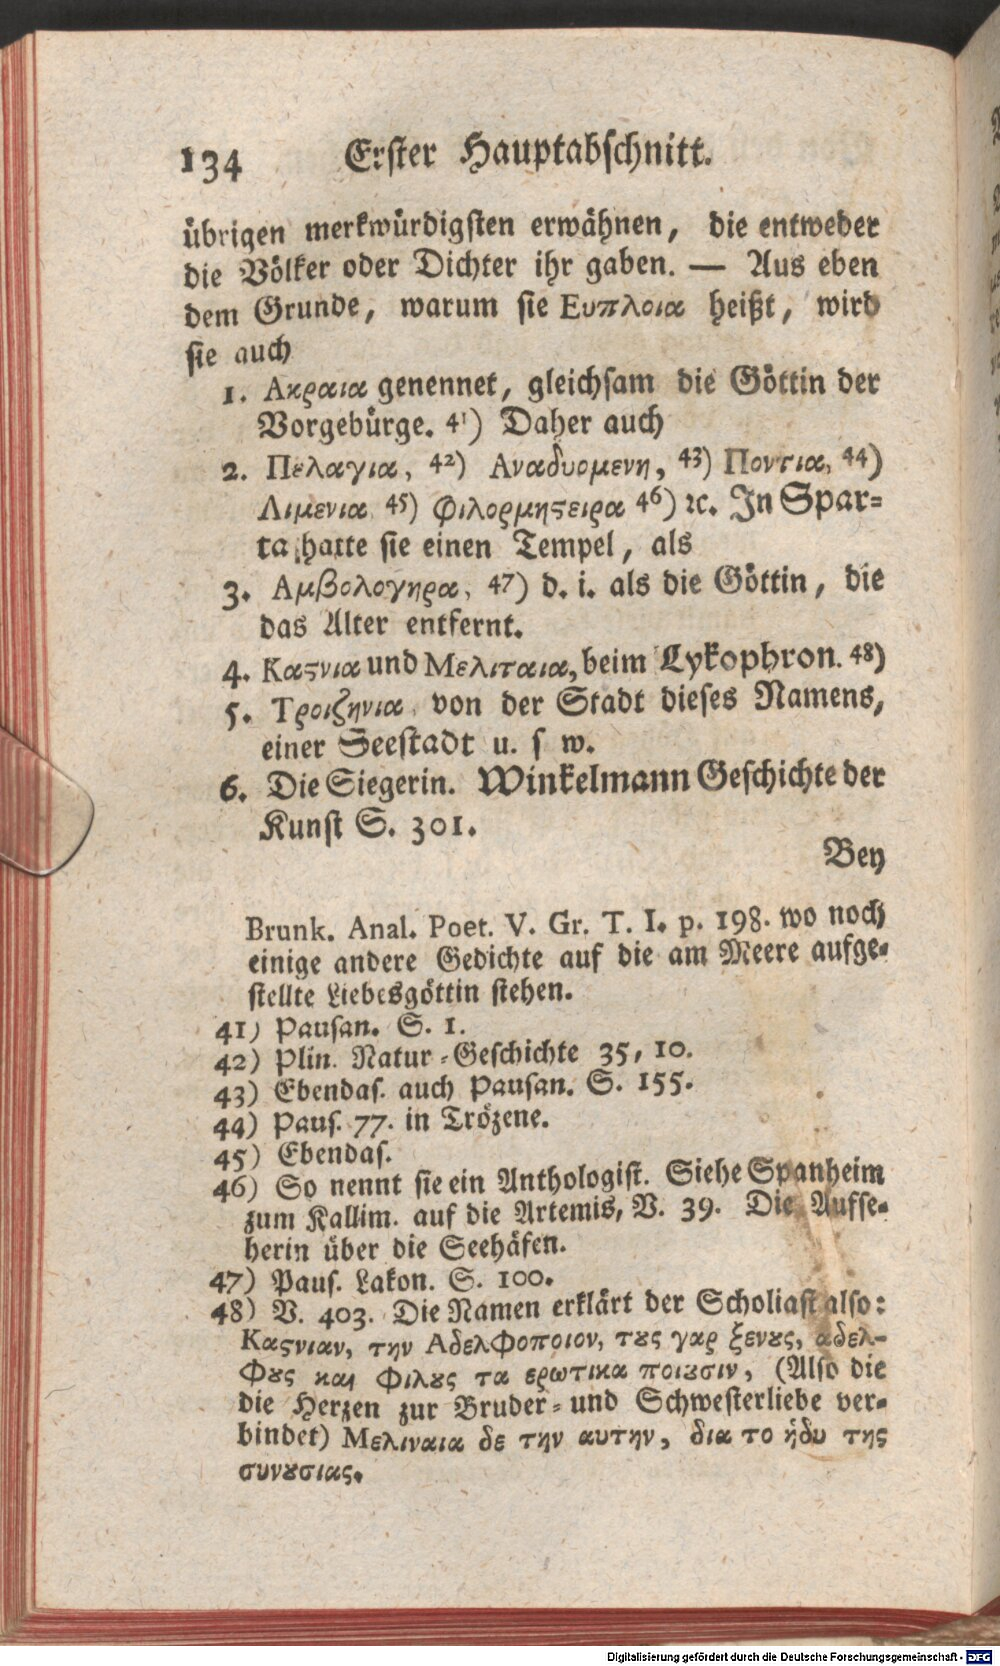 134 Erster Hauptabschnitt.
übrigen merkwürdigsten erwähnen, die entweder
die Völker oder Dichter ihr gaben. — Aus eben
dem Grunde, warum sie Ευπλοια heißt, wird
sie auch
1. Ακραια genennet, gleichsam die Göttin der
Vorgebürge. 41) Daher auch
2. Πελαγια, 42) Αναδυομενη, 43) Ποντια, 44)
Λιμενια 45) Φιλορμηϛειρα 46) ꝛc. In Spar-
ta hatte sie einen Tempel, als
3. Αμβολογηρα, 47) d. i. als die Göttin, die
das Alter entfernt.
4. Καϛνια und Μελιταια, beim Lykophron. 48)
5. Τροιζηνια, von der Stadt dieses Namens,
einer Seestadt u. s w.
6. Die Siegerin. Winkelmann Geschichte der
Kunst S. 301.
Bey
Brunk. Anal. Poet. V. Gr. T. I. p. 198. wo noch
einige andere Gedichte auf die am Meere aufge-
stellte Liebesgöttin stehen.
41) Pausan. S. 1.
42) Plin. Natur-Geschichte 35, 10.
43) Ebendas. auch Pausan. S. 155.
44) Paus. 77. in Trözene.
45) Ebendas.
46) So nennt sie ein Anthologist. Siehe Spanheim
zum Kallim. auf die Artemis, V. 39. Die Aufse-
herin über die Seehäfen.
47) Paus. Lakon. S. 100.
48) V. 403. Die Namen erklärt der Scholiast also:
Καϛνιαν, την Αδελφοποιον, τȣς γαρ ξενȣς, αδελ-
φȣς και φιλȣς τα ερωτικα ποιȣσιν, (Also die
die Herzen zur Bruder- und Schwesterliebe ver-
bindet) Μελιναια δε την αυτην, δια το ἡδυ της
συνȣσιας.
Digitalisierung gefördert durch die Deutsche Forschungsgemeinschaft - DFG